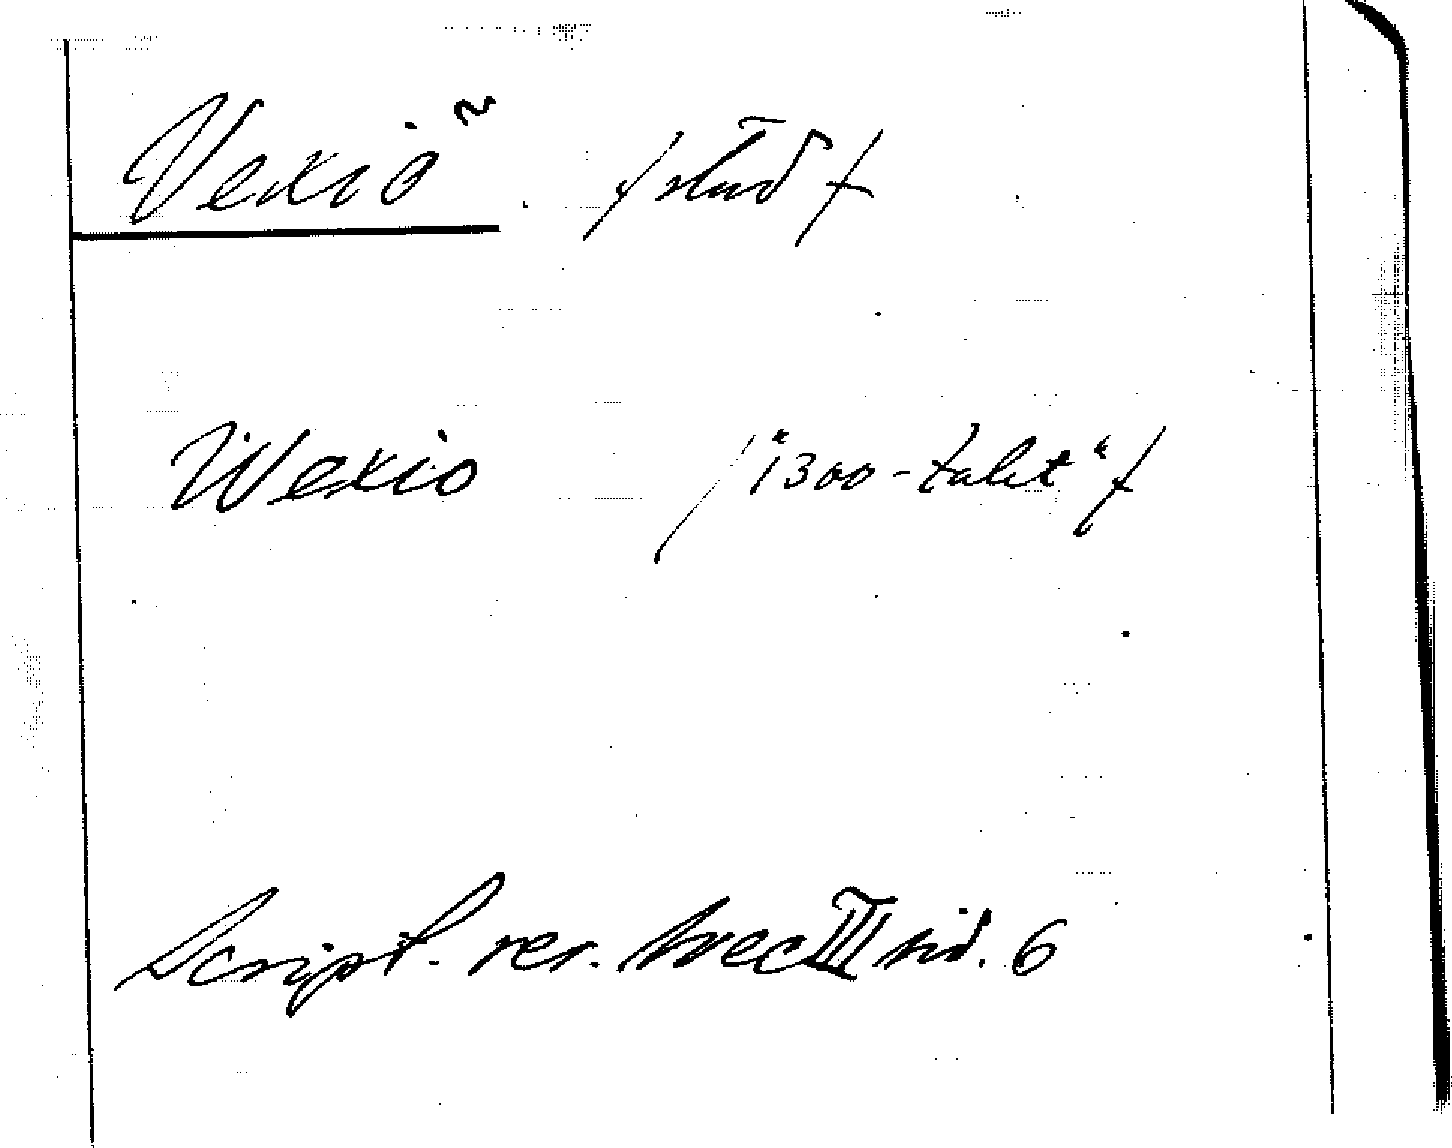 Vexiö . / stad /
Wexio / "1300-talet" /
Script. rer. svec III sid. 6